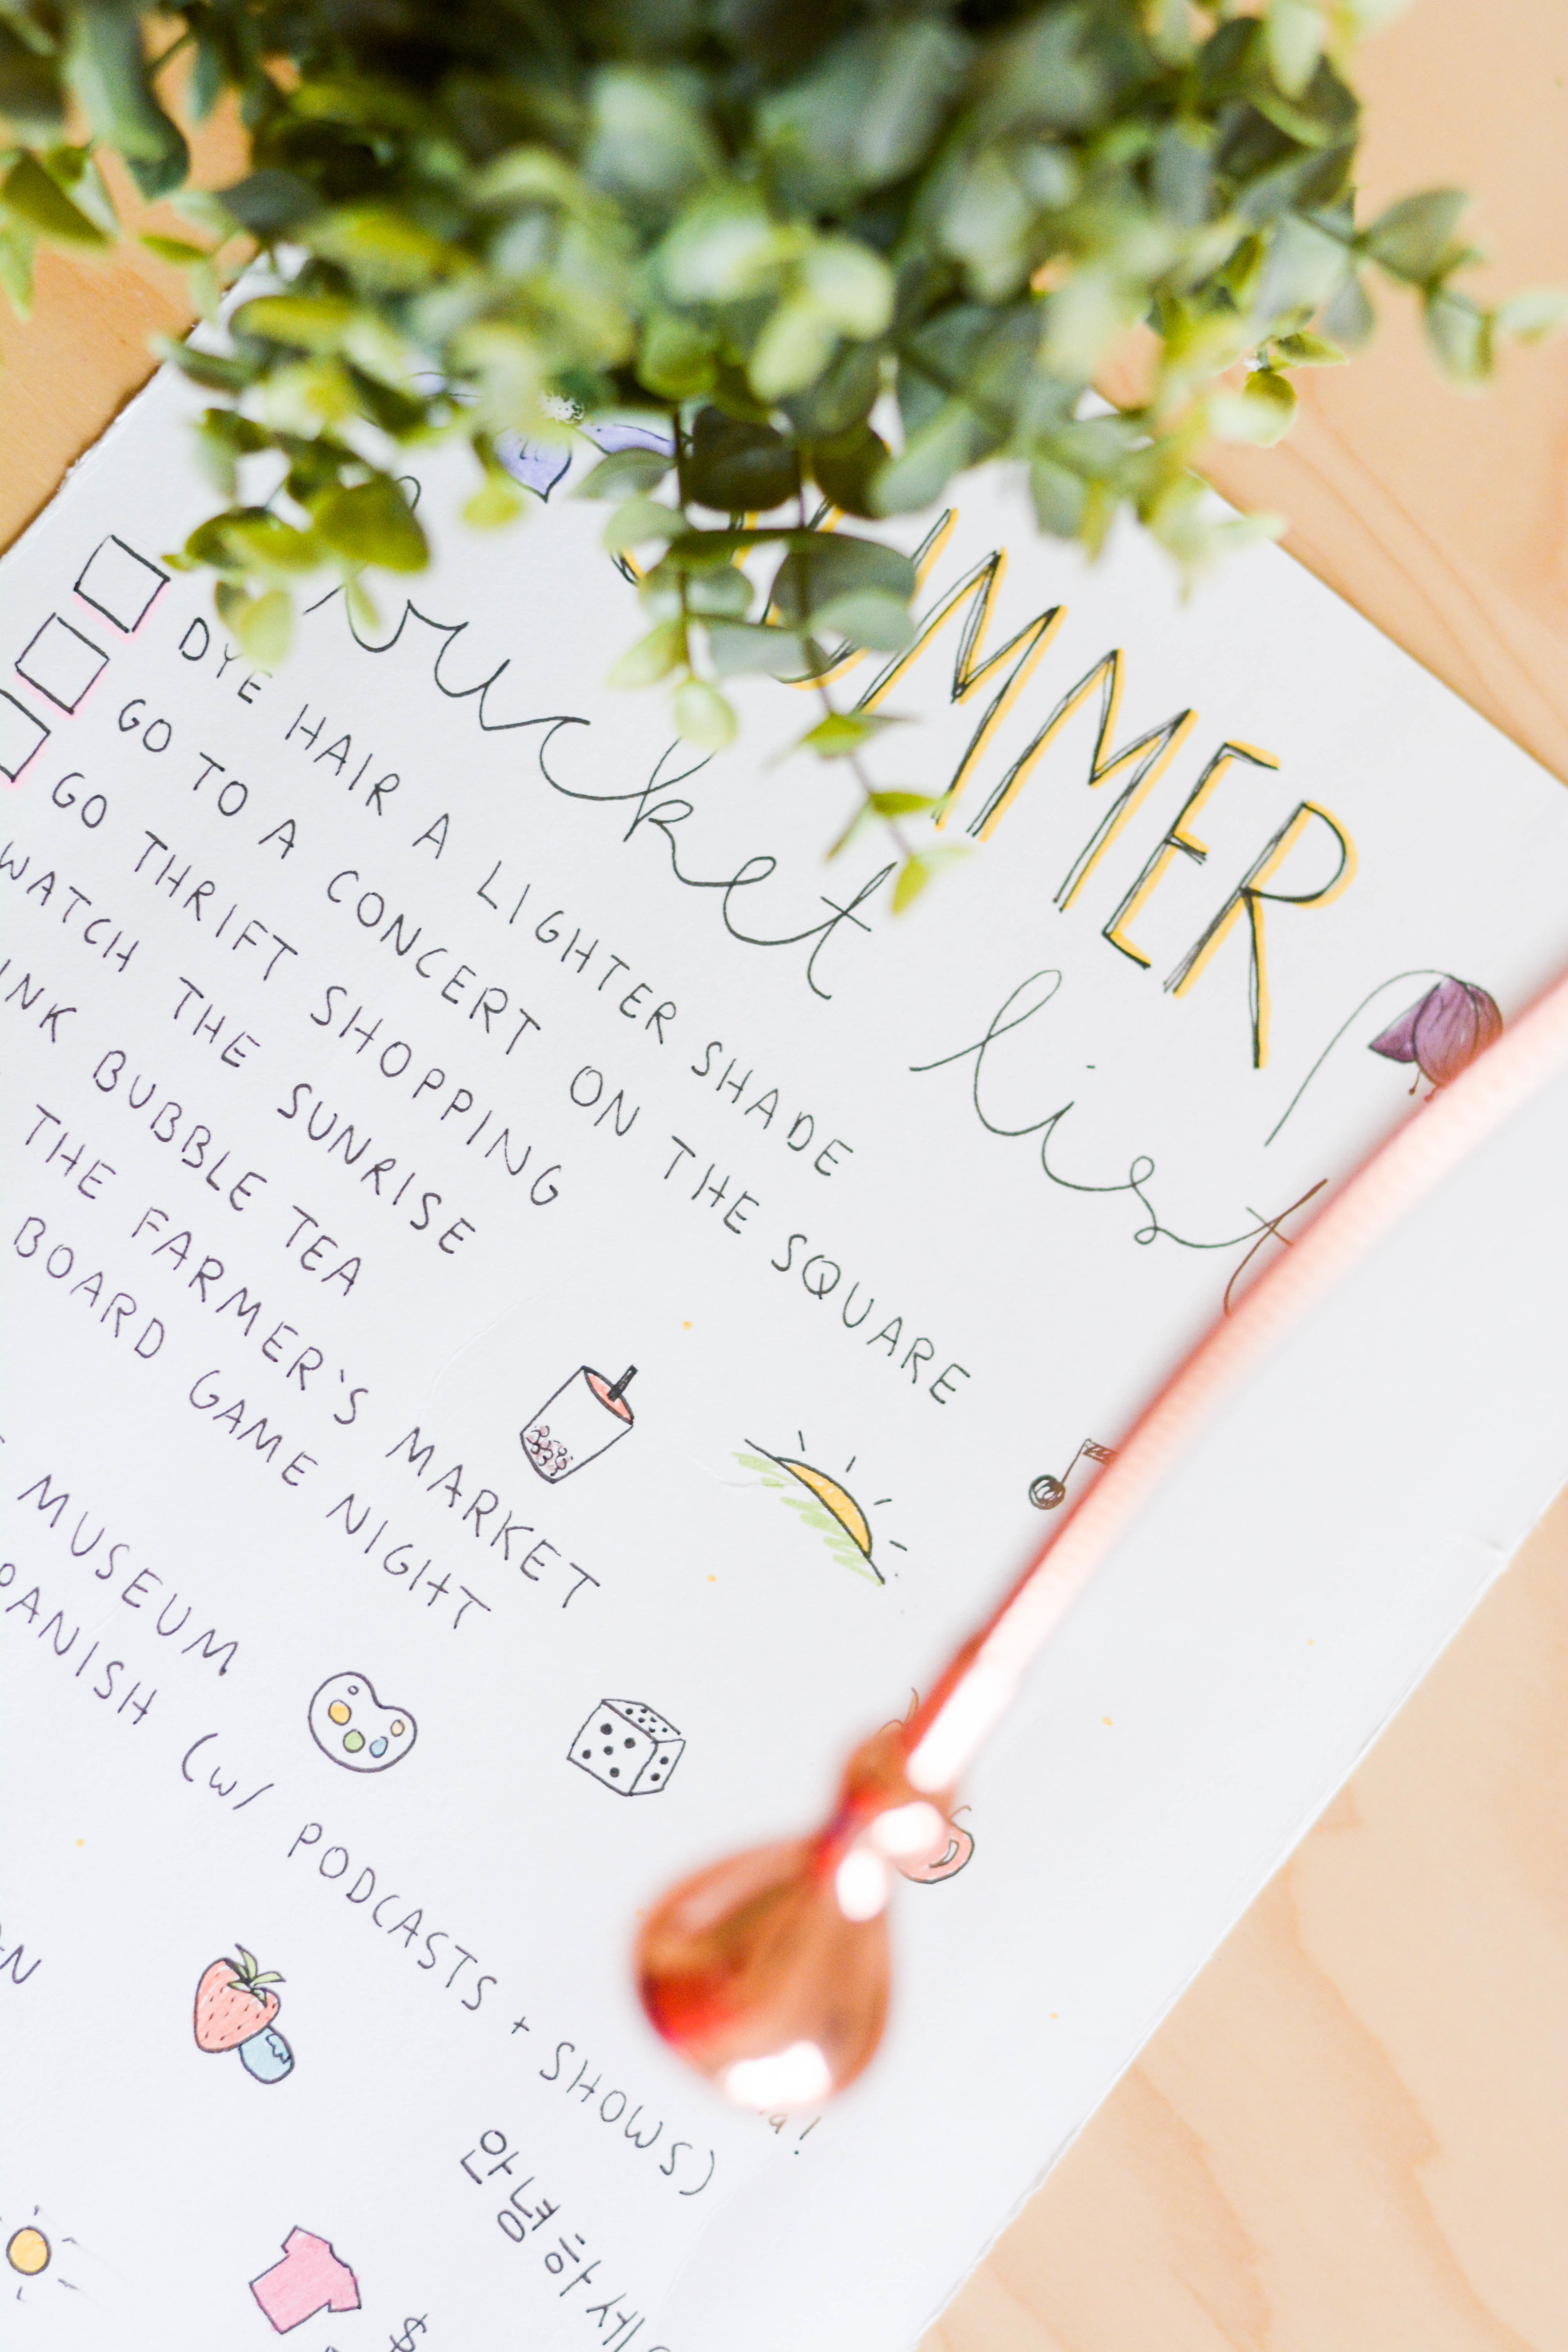 MMER
ucket list
DYE HAIR A LIGHTER SHADE
GO TO A CONCERT ON THE SQUARE
GO THRIFT SHOPPING
WATCH THE SUNRISE
INK BUBBLE TEA
THE FARMER'S MARKET
BOARD GAME NIGHT
MUSEUM
PANISH (W/ PODCASTS + SHOWS)
안녕하세
$